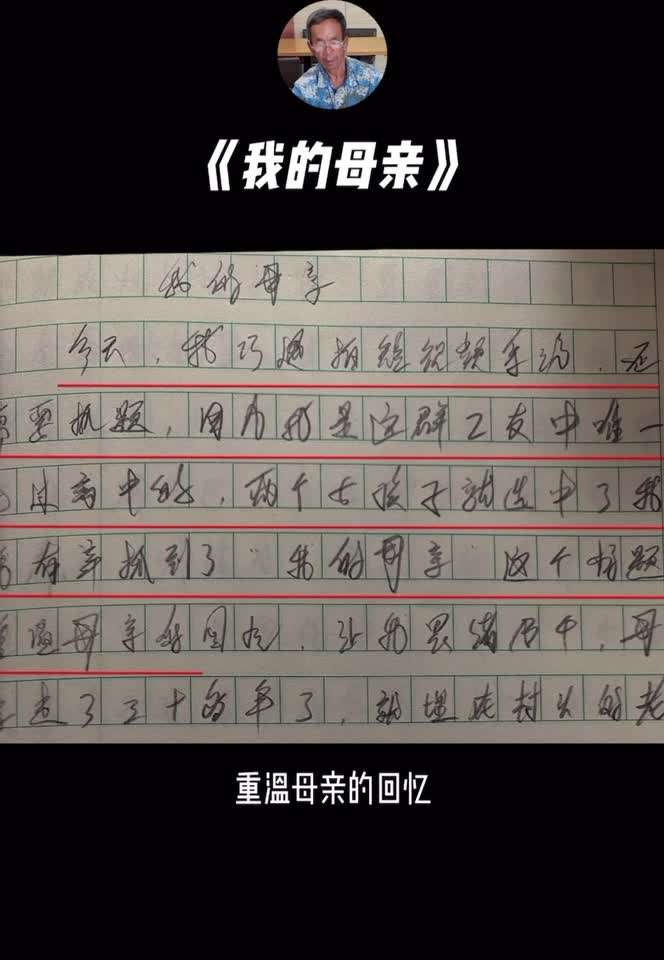 《我的母亲》
我的母亲
今天，我巧遇拍短视频，还
要抓题，因为我是这群工友中唯一
过高中的，两个女孩子就选中了我
有幸抓到了“我的母亲”这个标题
重温母亲的回忆，让我思绪万千，母
走了三十多年了，就埋在村头的老
重溫母亲的回忆